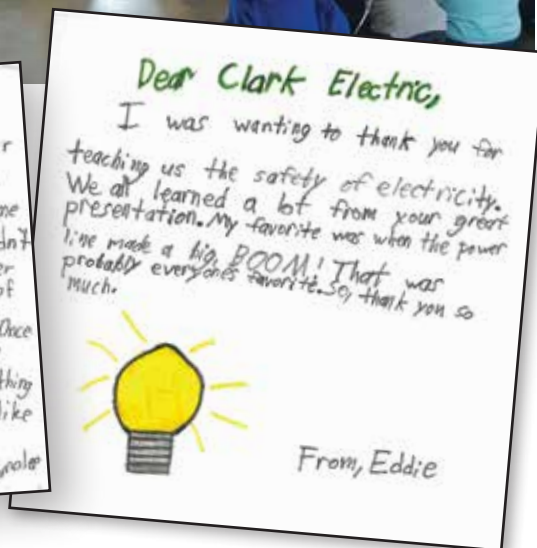 r
me
dn't
er
of
Once
thing
like
Dear Clark Electric,
I was wanting to thank you for
teaching us the safety of electricity.
We all learned a lot from your great
presentation. My favorite was when the power
line made a big BOOM! That was
probably everyones favorite. So, thank you so
much.
From, Eddie